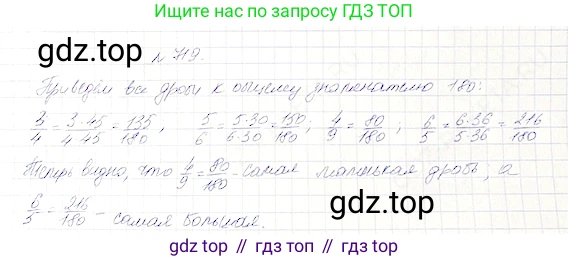 Ищите нас по запросу ГДЗ ТОП
gdz.top
№ 719.
gdz.top
Приведём все дроби к общему знаменателю 180:
3/4 = 3·45/4·45 = 135/180, 5/6 = 5·30/6·30 = 150/180; 4/9 = 80/180; 6/5 = 6·36/5·36 = 216/180
Теперь видно, что 4/9 = 80/180 - самая маленькая дробь, а
6/5 = 216/180 - самая большая.
gdz.top
gdz.top // гдз.топ // gdz.top // гдз.топ